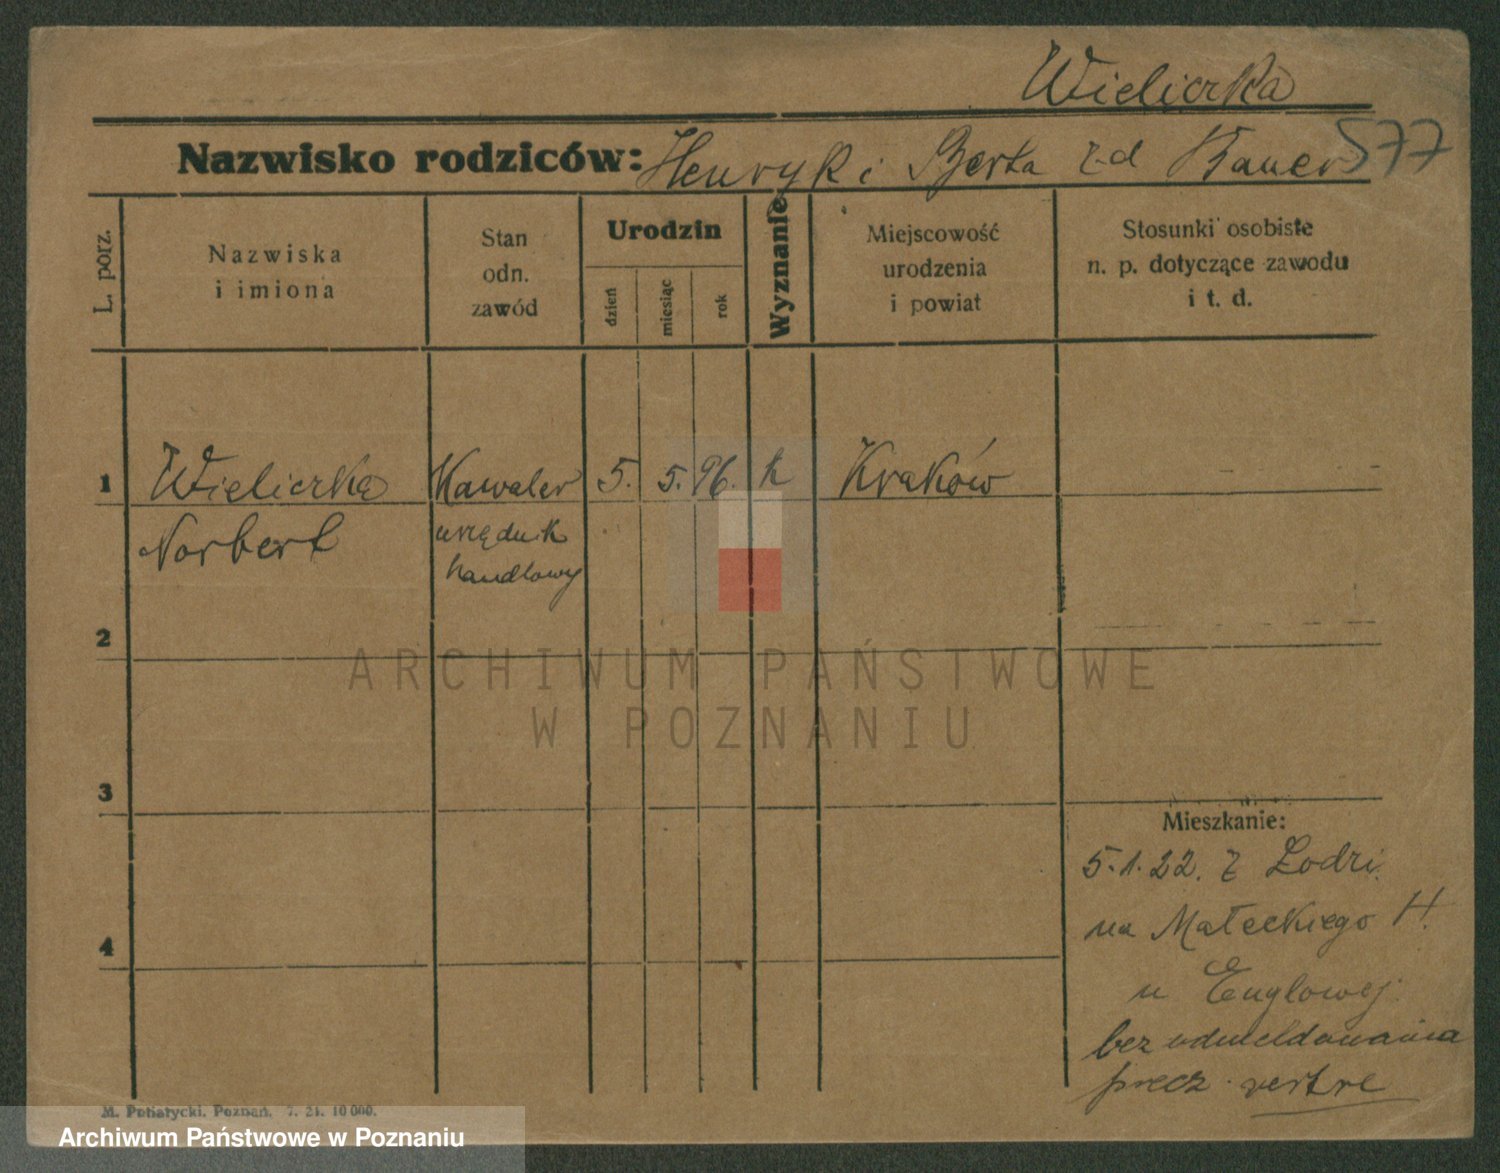 Wieliczka
Nazwisko rodziców: Henryk i Berta z-d Bauer 577
L. porz.
Nazwiska
i imiona
Stan
odn.
zawód
Urodzin
dzień
miesiąc
rok
Wyznanie
Miejscowość
urodzenia
i powiat
Stosunki osobiste
n. p. dotyczące zawodu
i t. d.
1 Wieliczka Kawaler 5. 5. 96. k Kraków
Norbert urzędnik
handlowy
2
3
4
Mieszkanie:
5.1.22. z Łodzi
na Małeckiego
u Englowej
bez odmeldowania
precz
M. Putiatycki, Poznań. 7. 21. 10 000.
ARCHIWUM PAŃSTWOWE
W POZNANIU
Archiwum Państwowe w Poznaniu